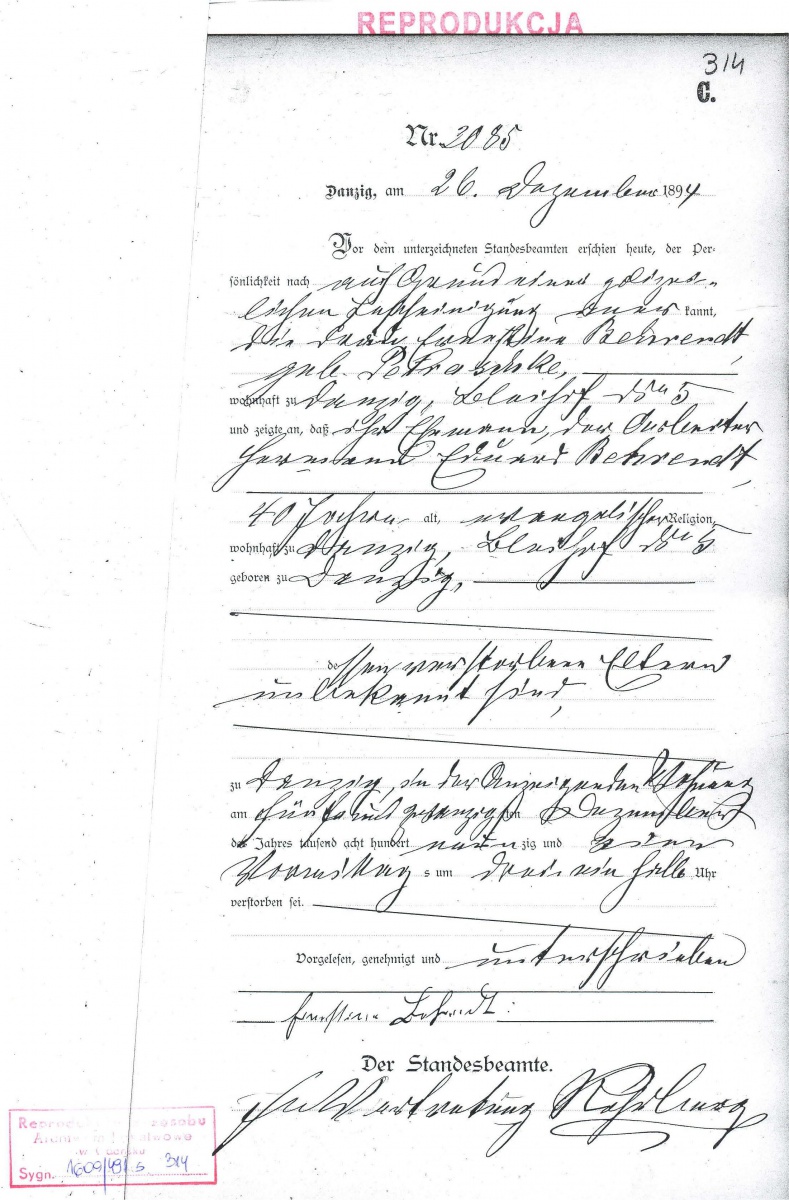 REPRODUKCJA
314
C.
Nr. 2085
Danzig, am 26. Dezember 1894
Vor dem unterzeichneten Standesbeamten erschien heute, der Per-
sönlichkeit nach auf Grund einer polizei-
lichen Bescheinigung aner kannt,
die Frau Ernestine Behrendt,
geb. Petraschke,
wohnhaft zu Danzig, Bleihof No 5
und zeigte an, daß ihr Ehemann, der Arbeiter
Hermann Eduard Behrendt,
40 Jahre alt, evangelischer Religion,
wohnhaft zu Danzig, Bleihof No 5
geboren zu Danzig,
dessen verstorbene Eltern
unbekannt sind,
zu Danzig, in der Anzeigenden Wohnung
am fünfundzwanzigsten Dezember
des Jahres tausend acht hundert neunzig und vier
Vormittag s um drei ein halb Uhr
verstorben sei.
Vorgelesen, genehmigt und unterschrieben
Ernstine Behrendt.
Der Standesbeamte.
In Vertretung
Archiwum Państwowe
Sygn. 1609/491 s 314